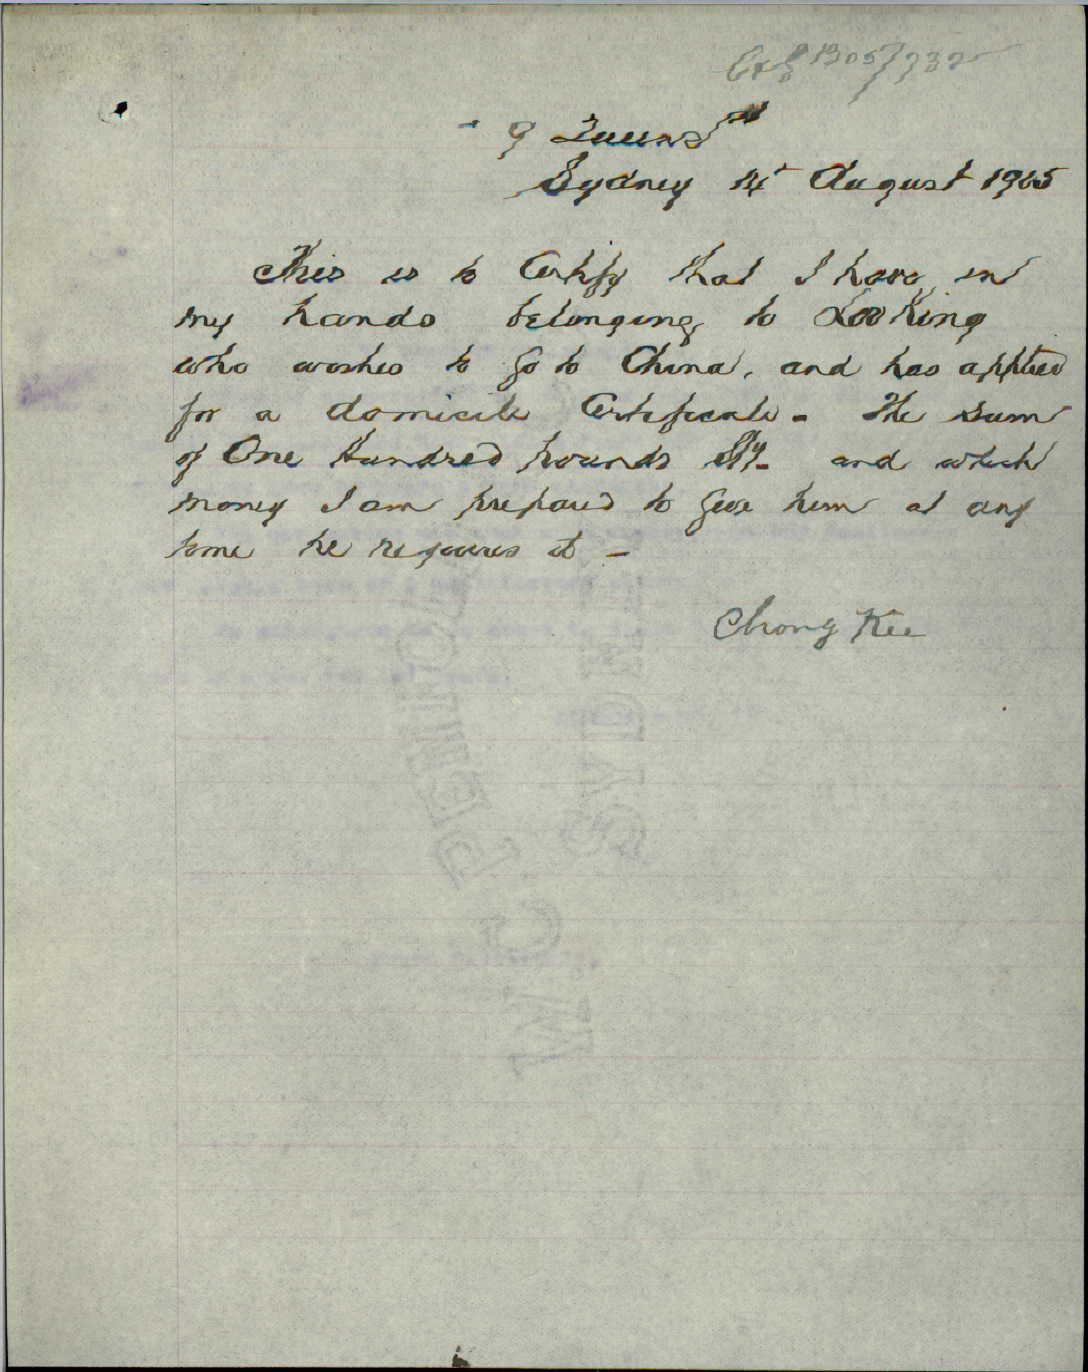 9 Queens St
Sydney 14th August 1905
This is to Certify that I have in
my hands belonging to Loo King
who wishes to go to China, and has applied
for a domicile Certificate - The sum
of One Hundred pounds Stg. and which
money I am prepared to give him at any
time he requires it -
Chong Kee